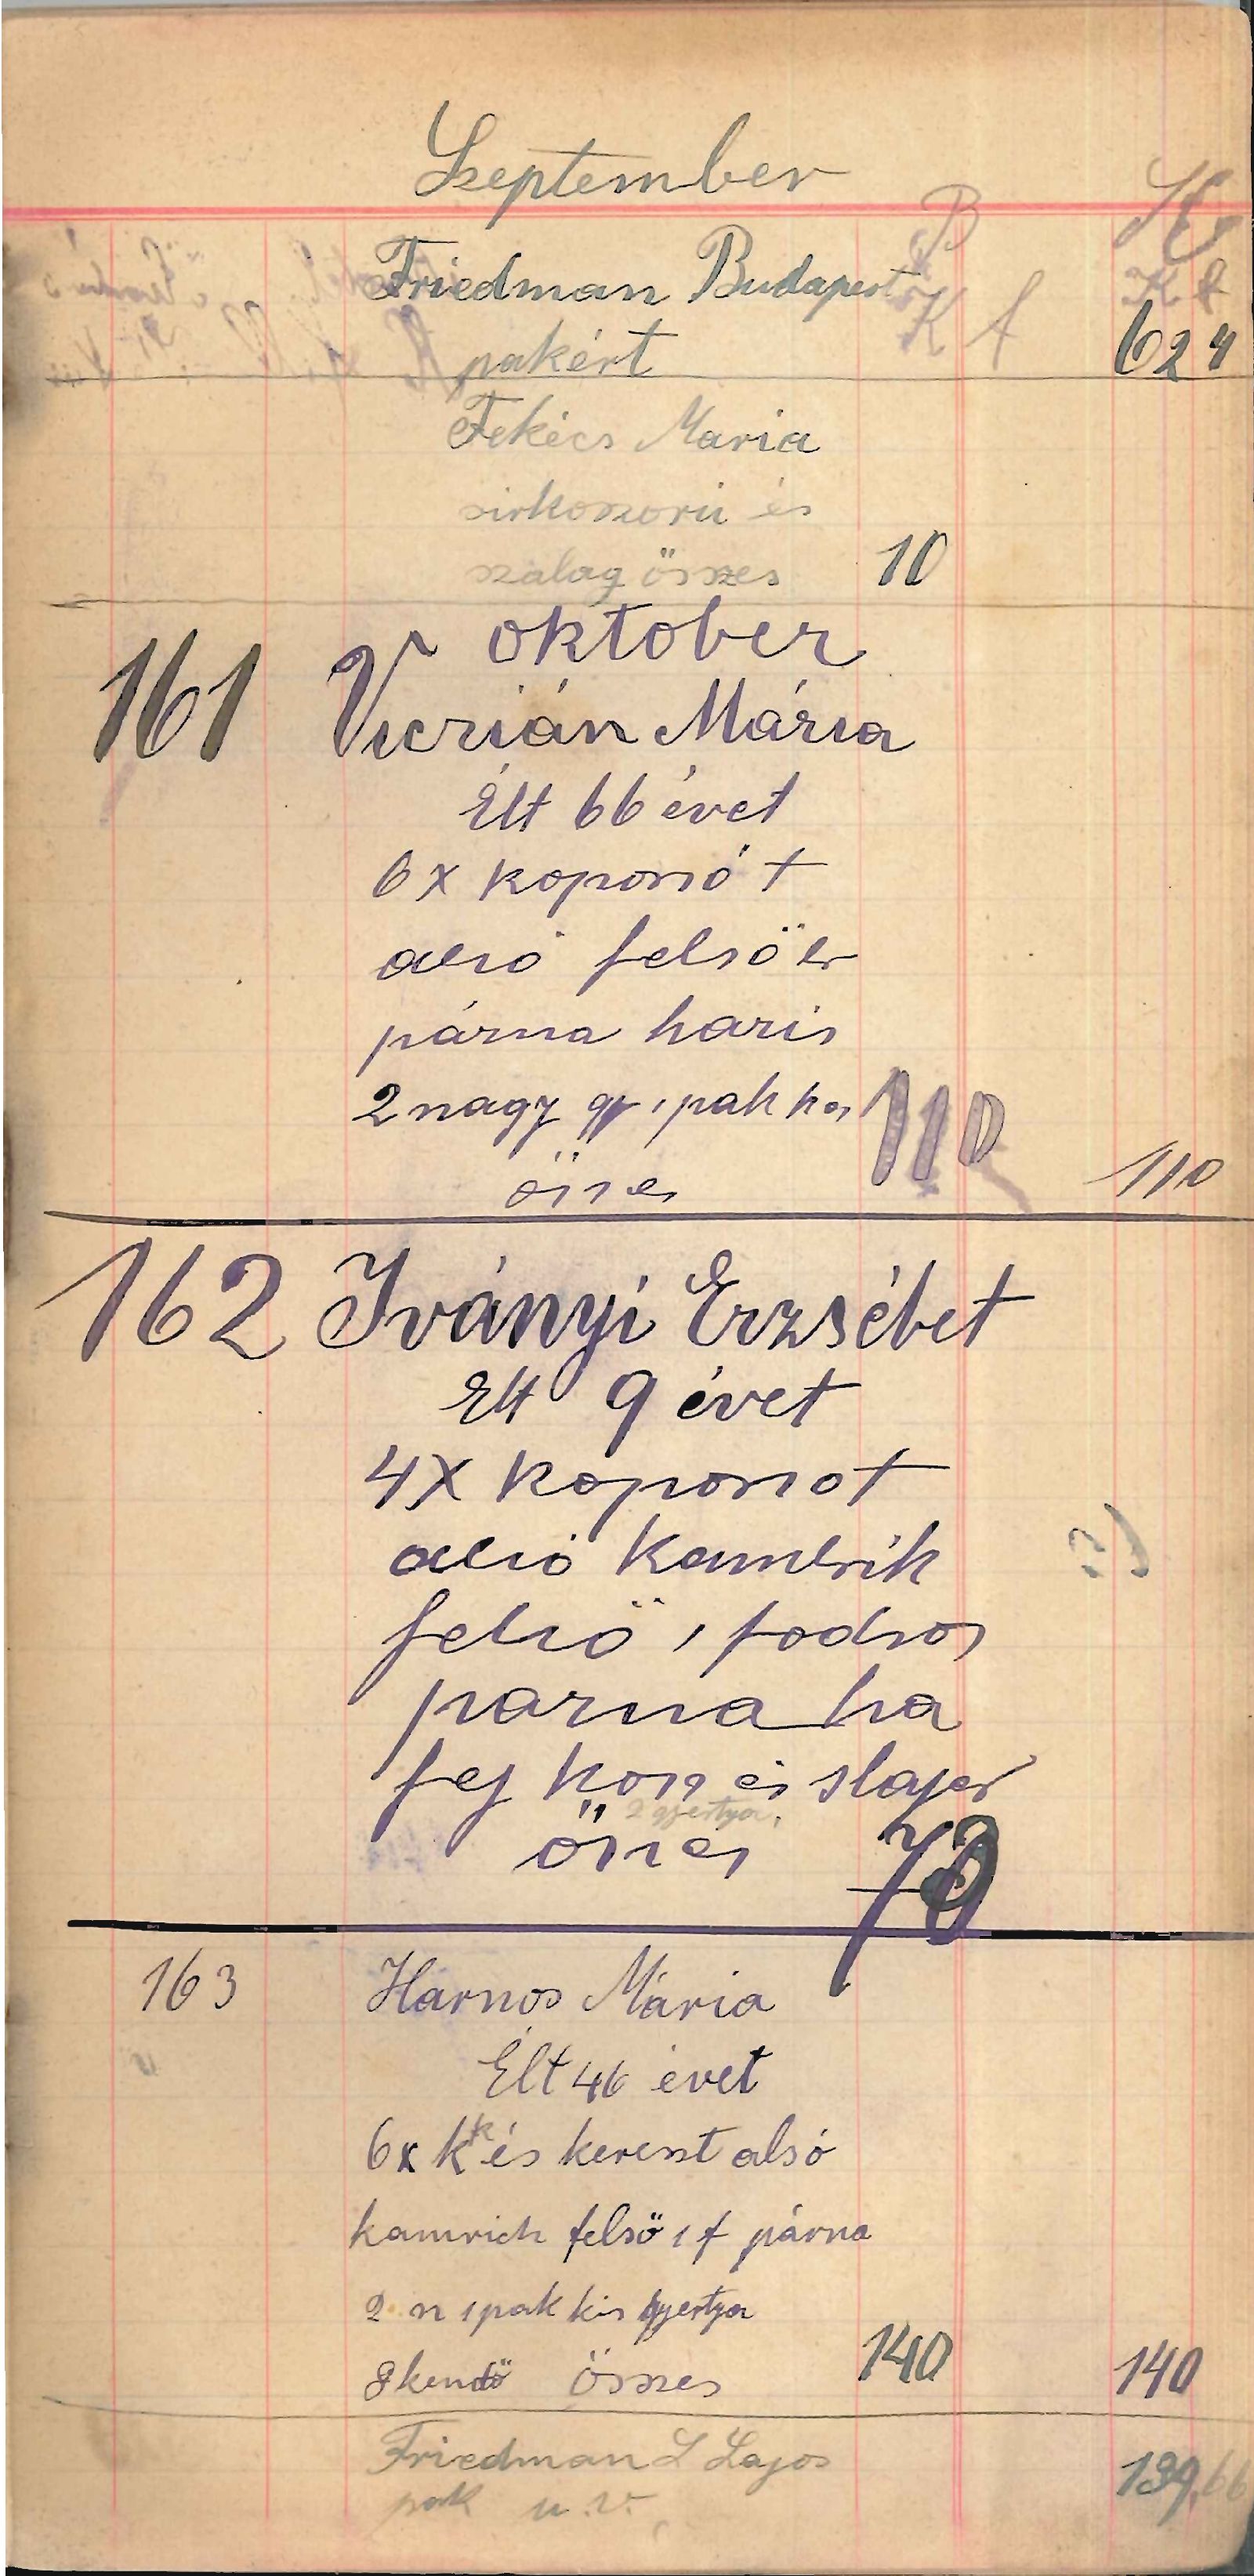 Szeptember
B K
Friedman Budapest
K f K f
pakért 624
Fekécs Maria
sirkoszorú és
szalag össszes 10
október
161 Viczián Mária
Élt 66 évet
6x koporsó t
alsó felső kr
párna haris
2 nagy gy 1 pak kis 110
össes 110
162 Iványi Erzsébet
Élt 9 évet
4x koporsot
alsó kamrik
felső 1 fodros
parna ha
fej kosz és slajer
2 gyertya
össes 70
163 Harnos Mária
Élt 46 évet
6x k k és kereszt alsó
kamrich felső 1 f párna
2 n 1 pak kis gyertya
8 kendő összes 140 140
Friedman L Lajos
pak u.v. 139,66